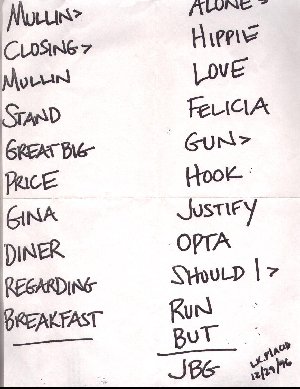 MULLIN>
CLOSING>
MULLIN
STAND
GREAT BIG
PRICE
GINA
DINER
REGARDING
BREAKFAST
ALONE>
HIPPIE
LOVE
FELICIA
GUN>
HOOK
JUSTIFY
OPTA
SHOULD I>
RUN
BUT
JBG
LK PLACID
12/29/96